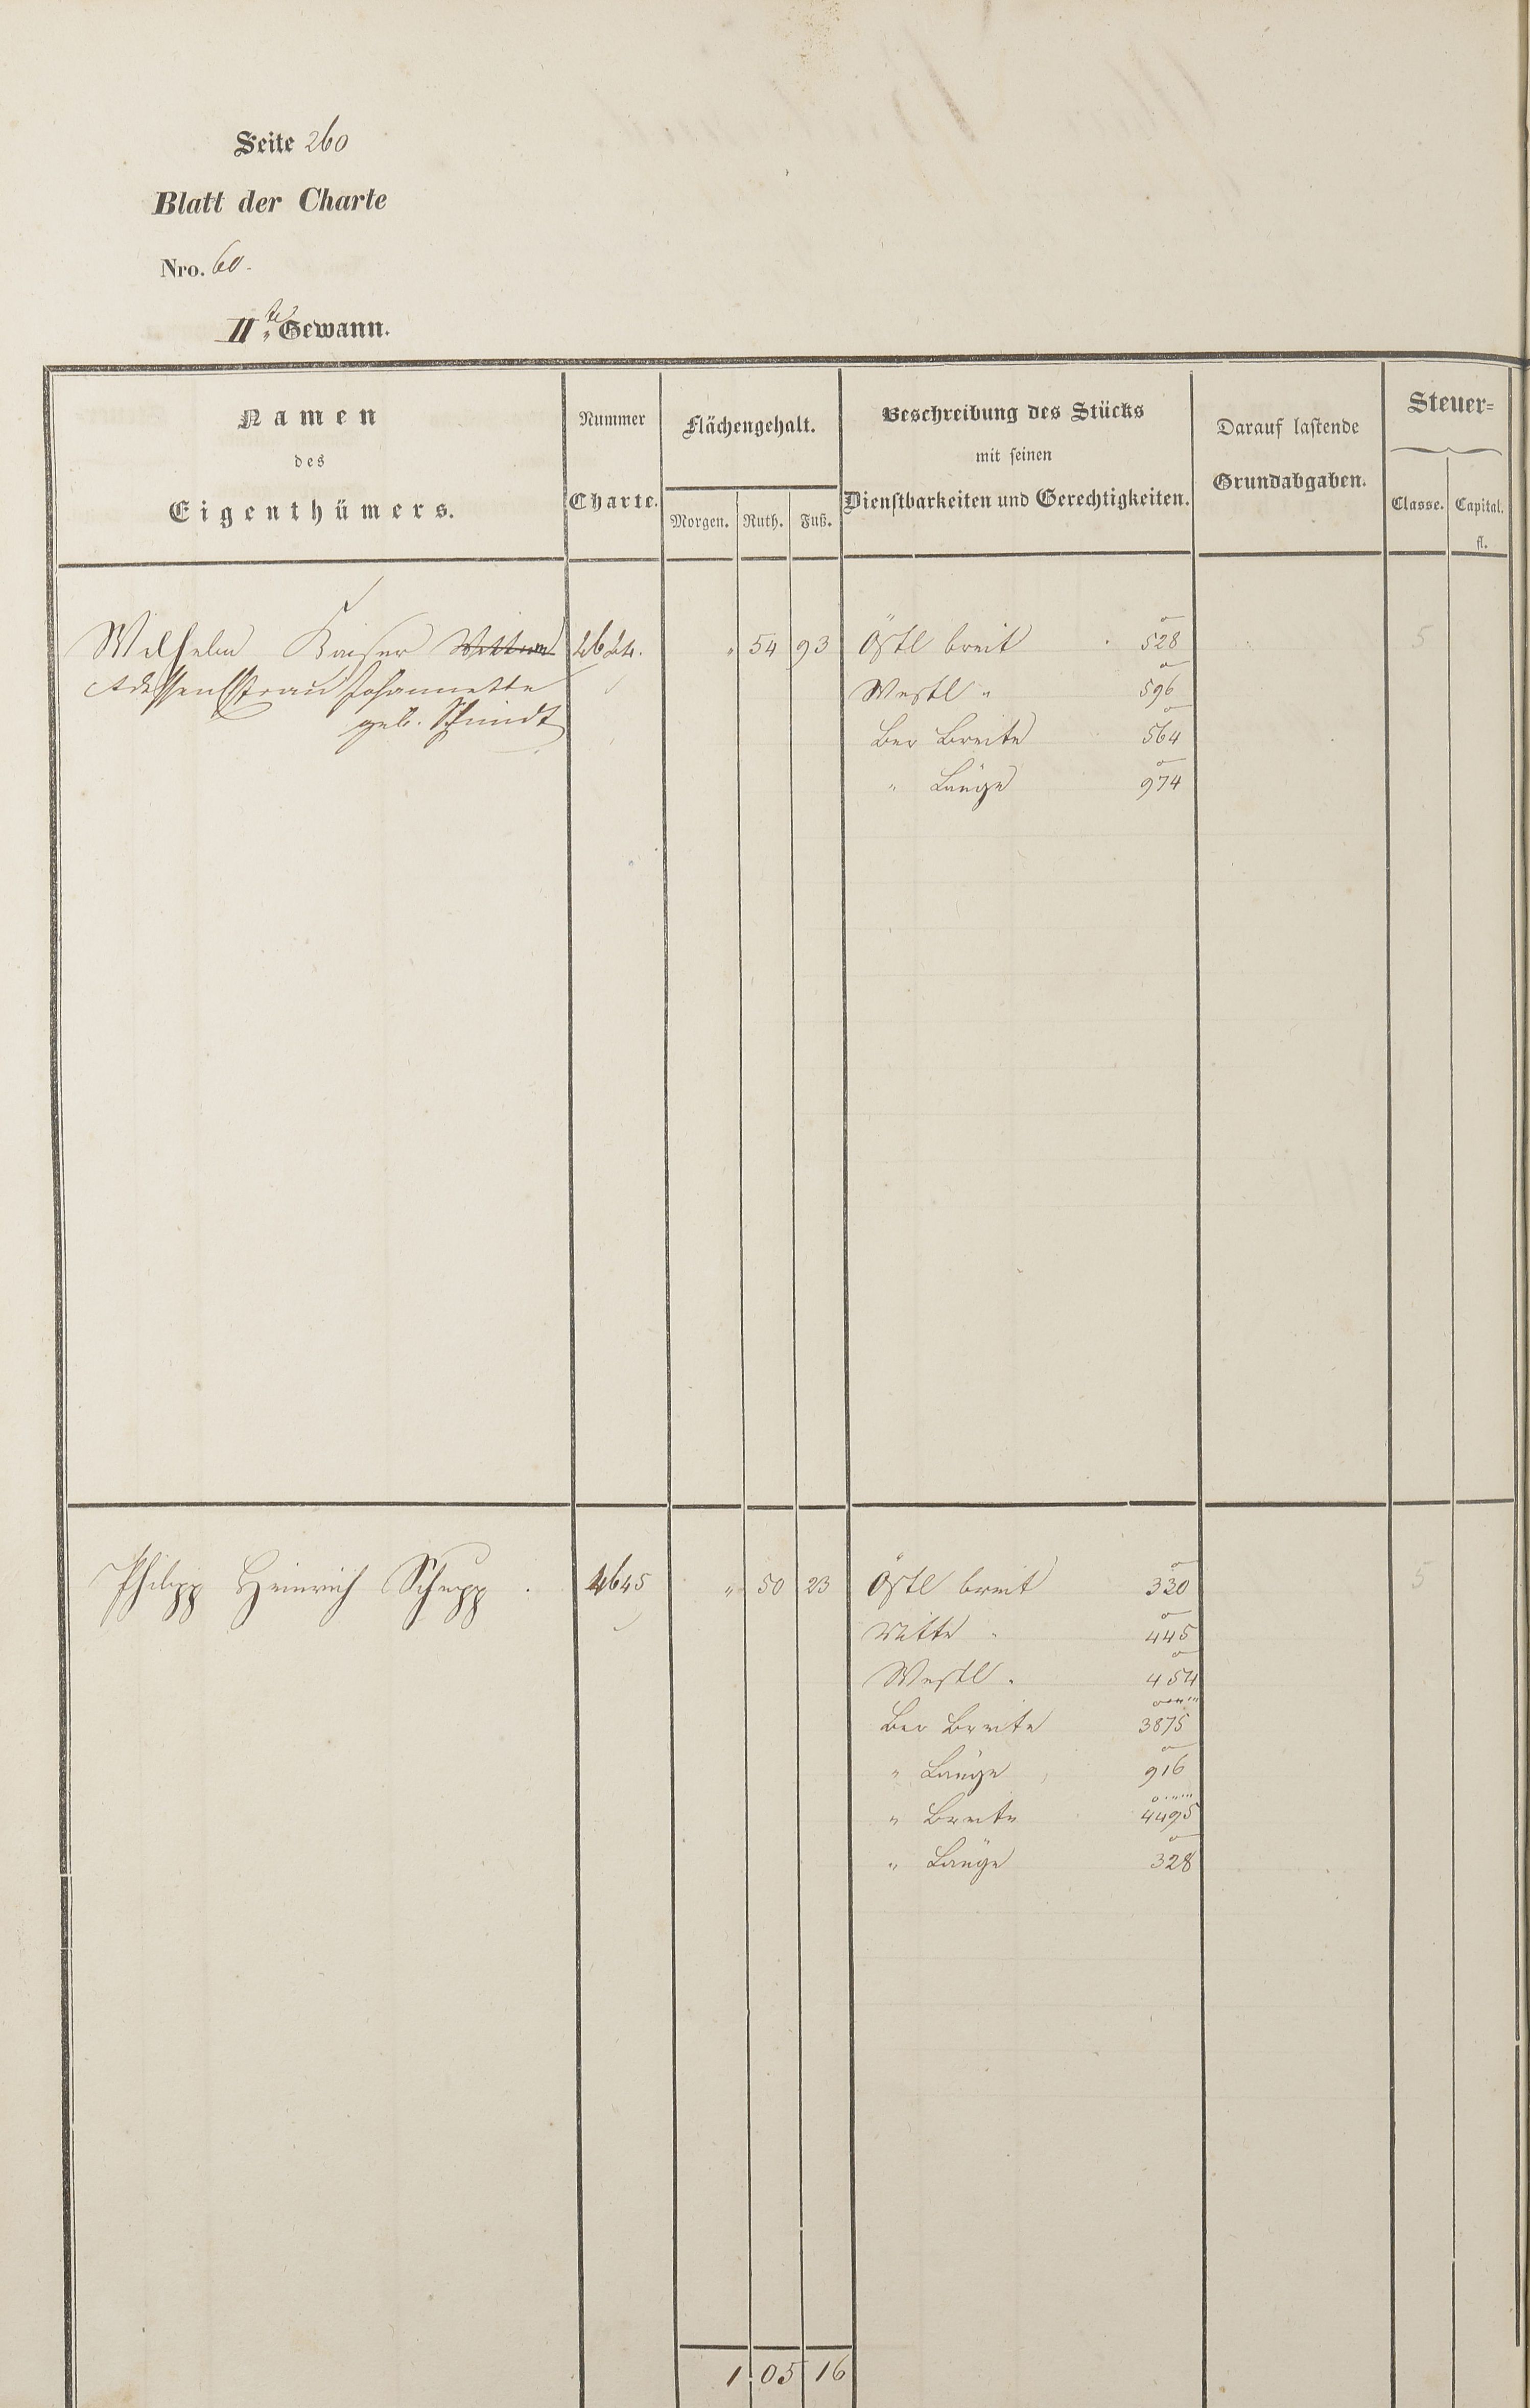 Seite 260
Blatt der Charte
Nro. 60.
IIte Gewann.
Namen
des
Eigenthümers.
Nummer
Charte.
Flächengehalt.
Morgen. Ruth. Fuß.
Beschreibung des Stücks
mit seinen
Dienstbarkeiten und Gerechtigkeiten.
Darauf lastende
Grundabgaben.
Steuer=
Classe. Capital.
fl.
Wilhelm Kaiser Wittwe 4644. " 54 93 Östl breit 528 5
dessen Ehefrau Johannette Westl " 596
geb. Schmidt
Ber Breite 564
" Länge 974
Philipp Heinrich Schupp. 4645 " 50 23 Östl breit 330 5
Mitte " 445
Westl " 454
Ber Breite 3875
" Länge 916
" Breite 4495
" Länge 328
1 05 16